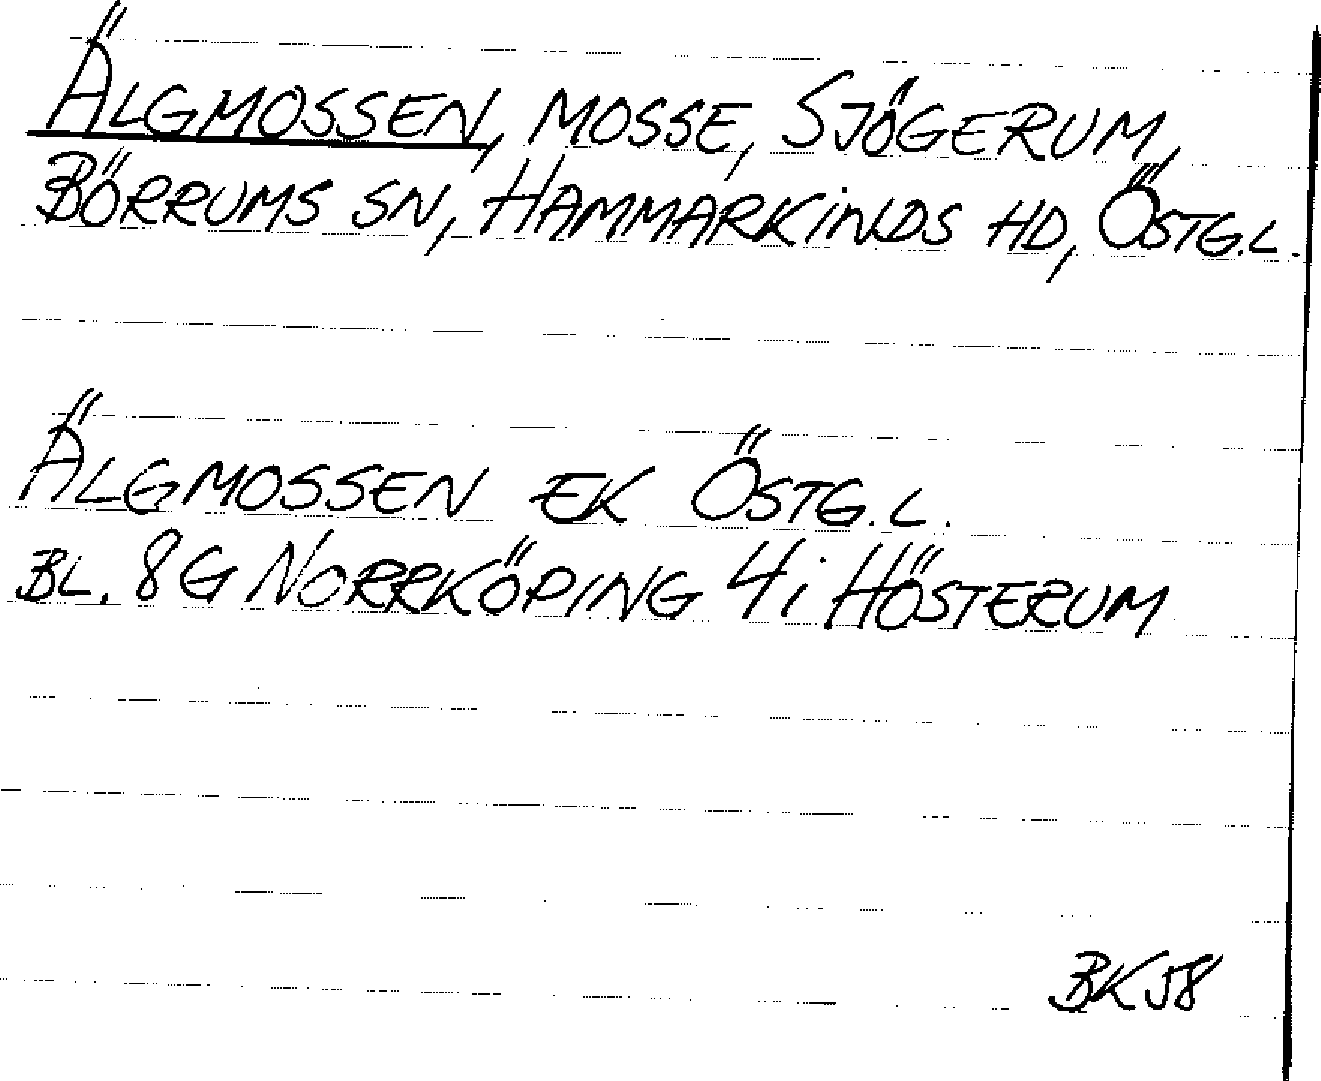 ÄLGMOSSEN, MOSSE, SJÖGERUM,
BÖRRUMS SN, HAMMARKINDS HD, ÖSTG.L.
ÄLGMOSSEN EK ÖSTG.L.
BL. 8G NORRKÖPING 4i HÖSTERUM
BK58